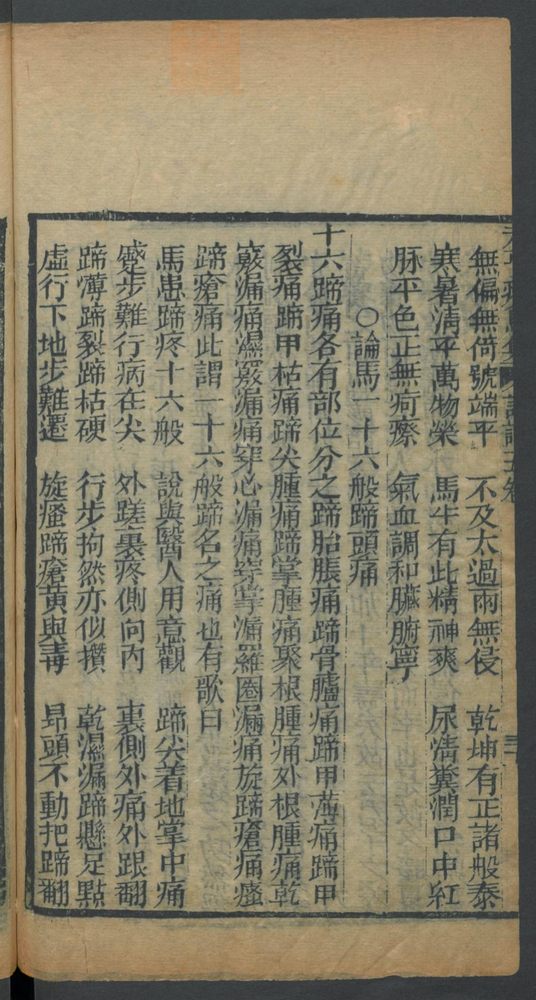 無偏無倚號端平　不及太過雨無侵　乾坤有正諸般泰
寒暑淸平萬物榮　馬牛有此精神爽　尿淸糞潤口中紅
脉平色正無疴瘵　氣血調和臟腑寧
○論馬一十六般蹄頭痛
十六蹄痛各有部位分之蹄胎脹痛蹄骨臚痛蹄甲薄痛蹄甲
裂痛蹄甲枯痛蹄尖腫痛蹄掌腫痛聚根腫痛外根腫痛乾
竅漏痛濕竅漏痛穿心漏痛穿掌漏羅圈漏痛旋蹄瘡痛瘙
蹄瘡痛此謂一十六般蹄名之痛也有歌曰
馬患蹄疼十六般　說與醫人用意觀　蹄尖着地掌中痛
蹙步難行病在尖　外蹉裏疼側向內　裏側外痛外跟翻
蹄薄蹄裂蹄枯硬　行步拘然亦似攢　乾濕漏蹄懸足點
虛行下地步難還　旋瘙蹄瘡黃與毒　昂頭不動把蹄翻